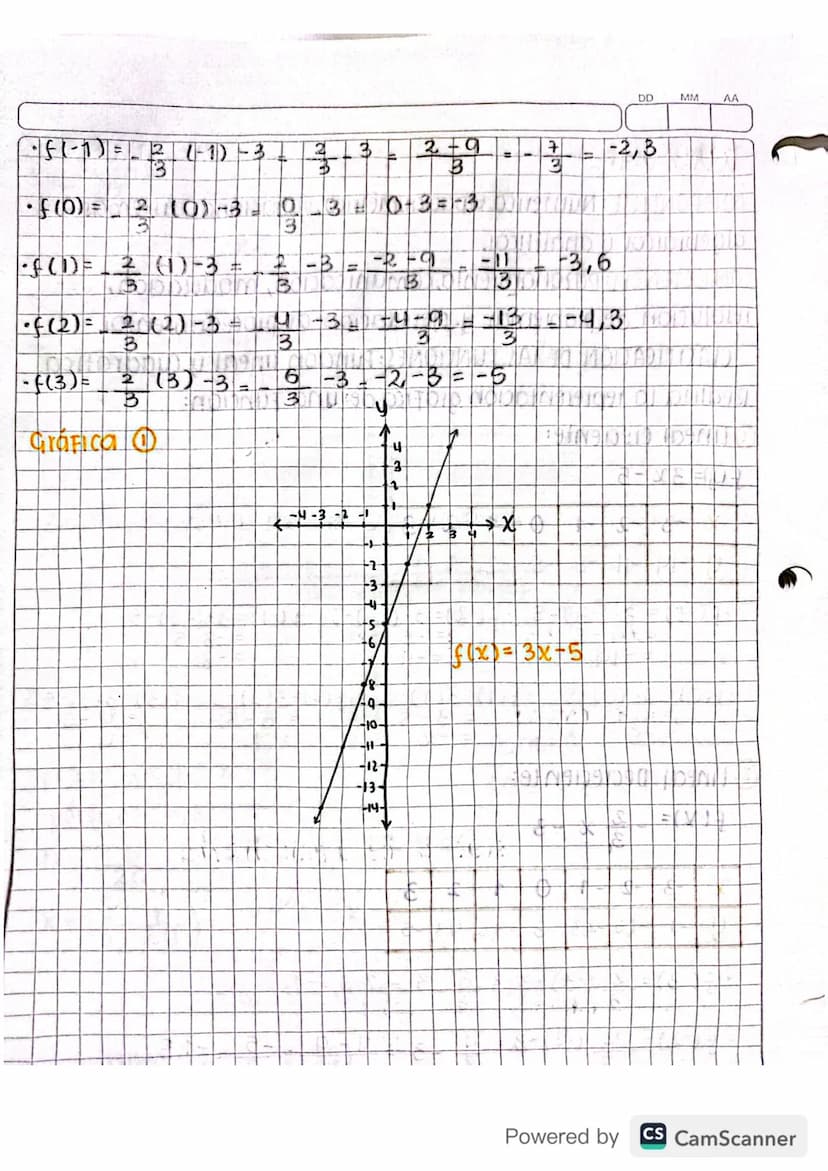 DD MM AA
·f(-1) = -2/3 (-1) -3 = 2/3 - 3 = 2-9/3 = -7/3 = -2,3
·f(0) = -2/3 (0) -3 = 0/3 -3 = 0-3 = -3
·f(1) = -2/3 (1) -3 = -2/3 -3 = -2-9/3 = -11/3 = -3,6
·f(2) = -2/3 (2) -3 = -4/3 -3 = -4-9/3 = -13/3 = -4,3
·f(3) = -2/3 (3) -3 = -6/3 -3 = -2,-3 = -5
Gráfica ①
y
4
3
2
1
-4 -3 -2 -1
x
1 2 3 4
-1
-2
-3
-4
-5
-6
-7
-8
-9
-10
-11
-12
-13
-14
f(x) = 3x-5
Powered by CS CamScanner